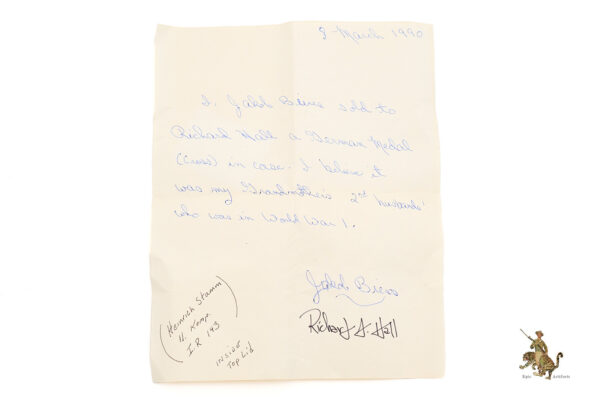 9 March 1990
I, Jakob Biers sold to
Richard Hall a German Medal
(Cross) in case. I believe it
was my Grandmother's 2nd husbands'
who was in World War 1.
Biers
Richard A. Hall
(Heinrich Stamm)
11. Komp.
I.R 143
inside
Top Lid
Epic Artifacts